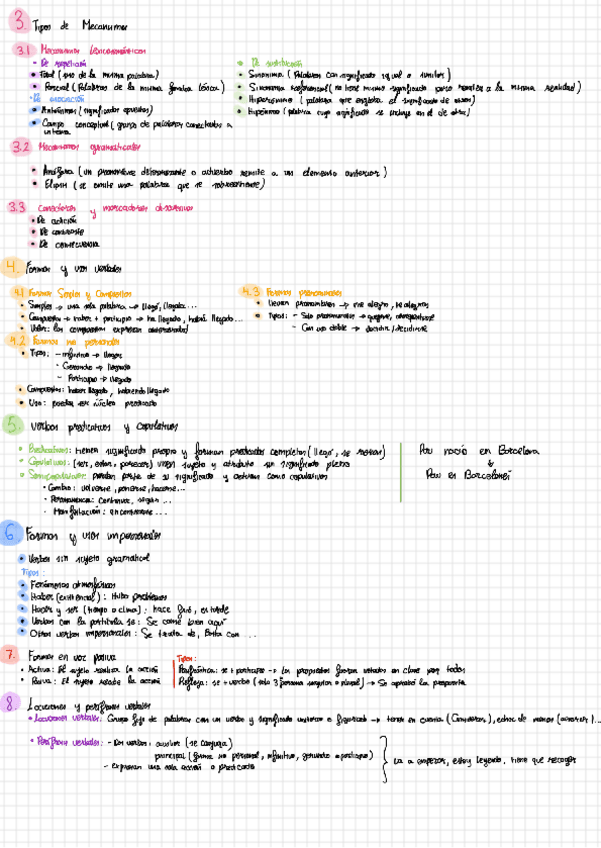 3. Tipos de Mecanismos
3.1 Mecanismos léxicosemánticos
• De repetición
• Total (uso de la misma palabra)
• Parcial (Palabras de la misma familia léxica)
• De asociación
• Antónimos (significados opuestos)
• Campo conceptual (grupo de palabras conectadas a
• De sustitución
• Sinónimos (Palabras con significado igual o similar)
• Sinónimos referencial (no tiene mismo significado pero remite a la misma realidad)
• Hiperónimo (palabra que engloba el significado de otras)
• Hipónimo (palabra cuyo significado se incluye en el de otra)
3.2 Mecanismos gramaticales
• Anáfora (un pronombre determinante o adverbio remite a un elemento anterior)
• Elipsis (se omite una palabra que se sobreentiende)
3.3 Conectores y marcadores discursivos
• De adición
• De contraste
• De consecuencia
4. Formas y usos verbales
4.1 Formas Simples y Compuestas
• Simples → una sola palabra → llegó, llegaba...
• Compuestas → haber + participio → ha llegado, habrá llegado...
• Valor: las compuestas expresan anterioridad
4.2 Formas no personales
• Tipos: - infinitivo → llegar
- Gerundio → llegando
- Participio → llegado
• Compuestas: haber llegado, habiendo llegado
• Uso: pueden ser núcleo predicado
4.3 Formas pronominales
• llevan pronombres → me alegro, te alegras
• Tipos: - Solo pronominales → quejarse, arrepentirse
- Con uso doble → decidir/decidirse
5. Verbos predicativos y copulativos
• Predicativos: tienen significado propio y forman predicados completos (llegó, se
• Copulativos: (ser, estar, parecer) unen sujeto y atributo sin significado pleno
• Semicopulativos: pierden parte de su significado y actúan como copulativos
• Cambio: volverse, ponerse, hacerse...
• Permanencia: continuar, seguir...
• Manifestación: encontrarse...
Pau nació en Barcelona
↓
Pau es Barcelonés
6. Formas y usos impersonales
• Verbos sin sujeto gramatical
Tipos:
• Fenómenos atmosféricos
• Haber (existencial): Hubo problemas
• Hacer y ser (tiempo o clima): hace frío, es tarde
• Verbos con la partícula se: Se come bien aquí
• Otros verbos impersonales: Se trata de, Basta con ...
7. Formas en voz pasiva
• Activa: El sujeto realiza la acción
• Pasiva: El sujeto recibe la acción
Tipos:
Perifrástica: ser + participio → Las propuestas fueron votadas en clase por todos
Refleja: se + verbo (solo 3ª persona singular o plural) → Se aprobó la propuesta
8 Locuciones y perífrasis verbales
• Locuciones verbales: Grupo fijo de palabras con un verbo y significado unitario o figurado → tener en cuenta (Considerar), echar de menos (añorar)...
• Perífrasis verbales: - Dos verbos: auxiliar (se conjuga)
principal (forma no personal, infinitivo, gerundio o participio)
- expresan una sola acción o predicado
va a empezar, estoy leyendo, tiene que recoger